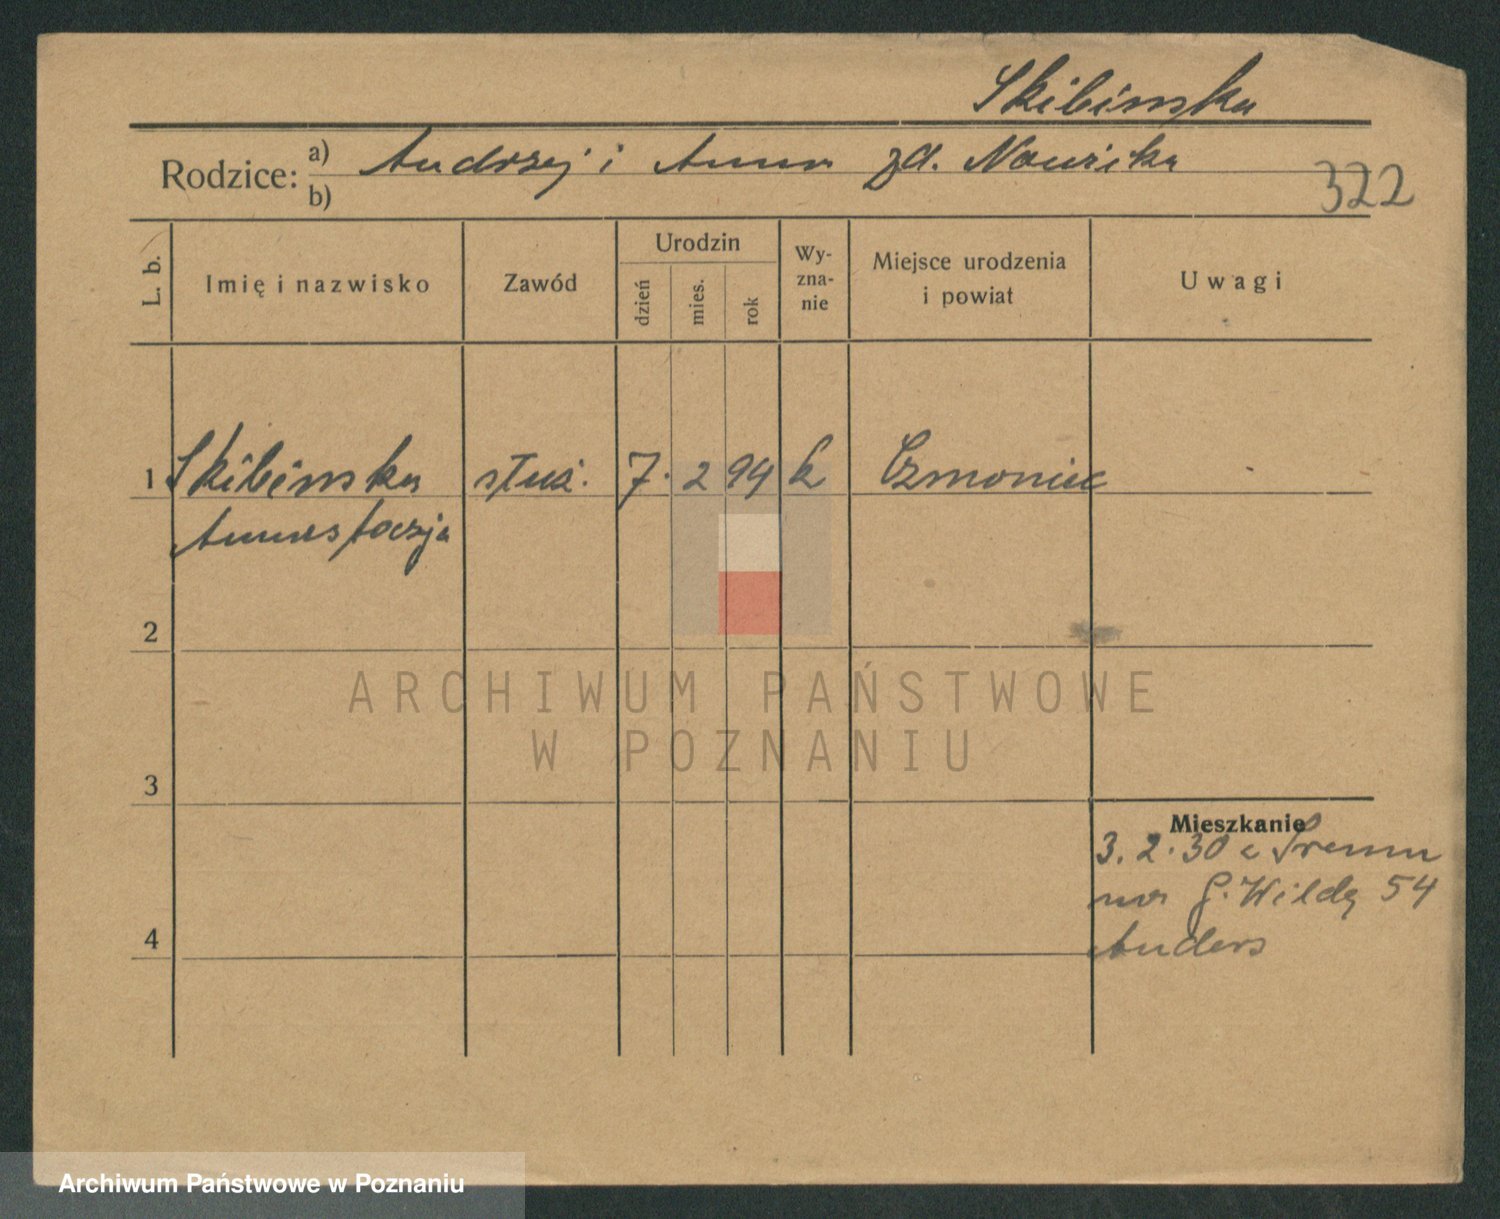 Skibinska
Rodzice: a) Andrzej i Anna zd. Nowicka
b)
322
L. b.
Imię i nazwisko
Zawód
Urodzin
dzień
mies.
rok
Wy-
zna-
nie
Miejsce urodzenia
i powiat
Uwagi
1 Skibinska służ. 7. 2 94 k Czmoniec
Annastaczja
2
ARCHIWUM PAŃSTWOWE
W POZNANIU
3
Mieszkanie
3. 2. 30 z Śremu
na G. Wildę 54
4
Anders
Archiwum Państwowe w Poznaniu